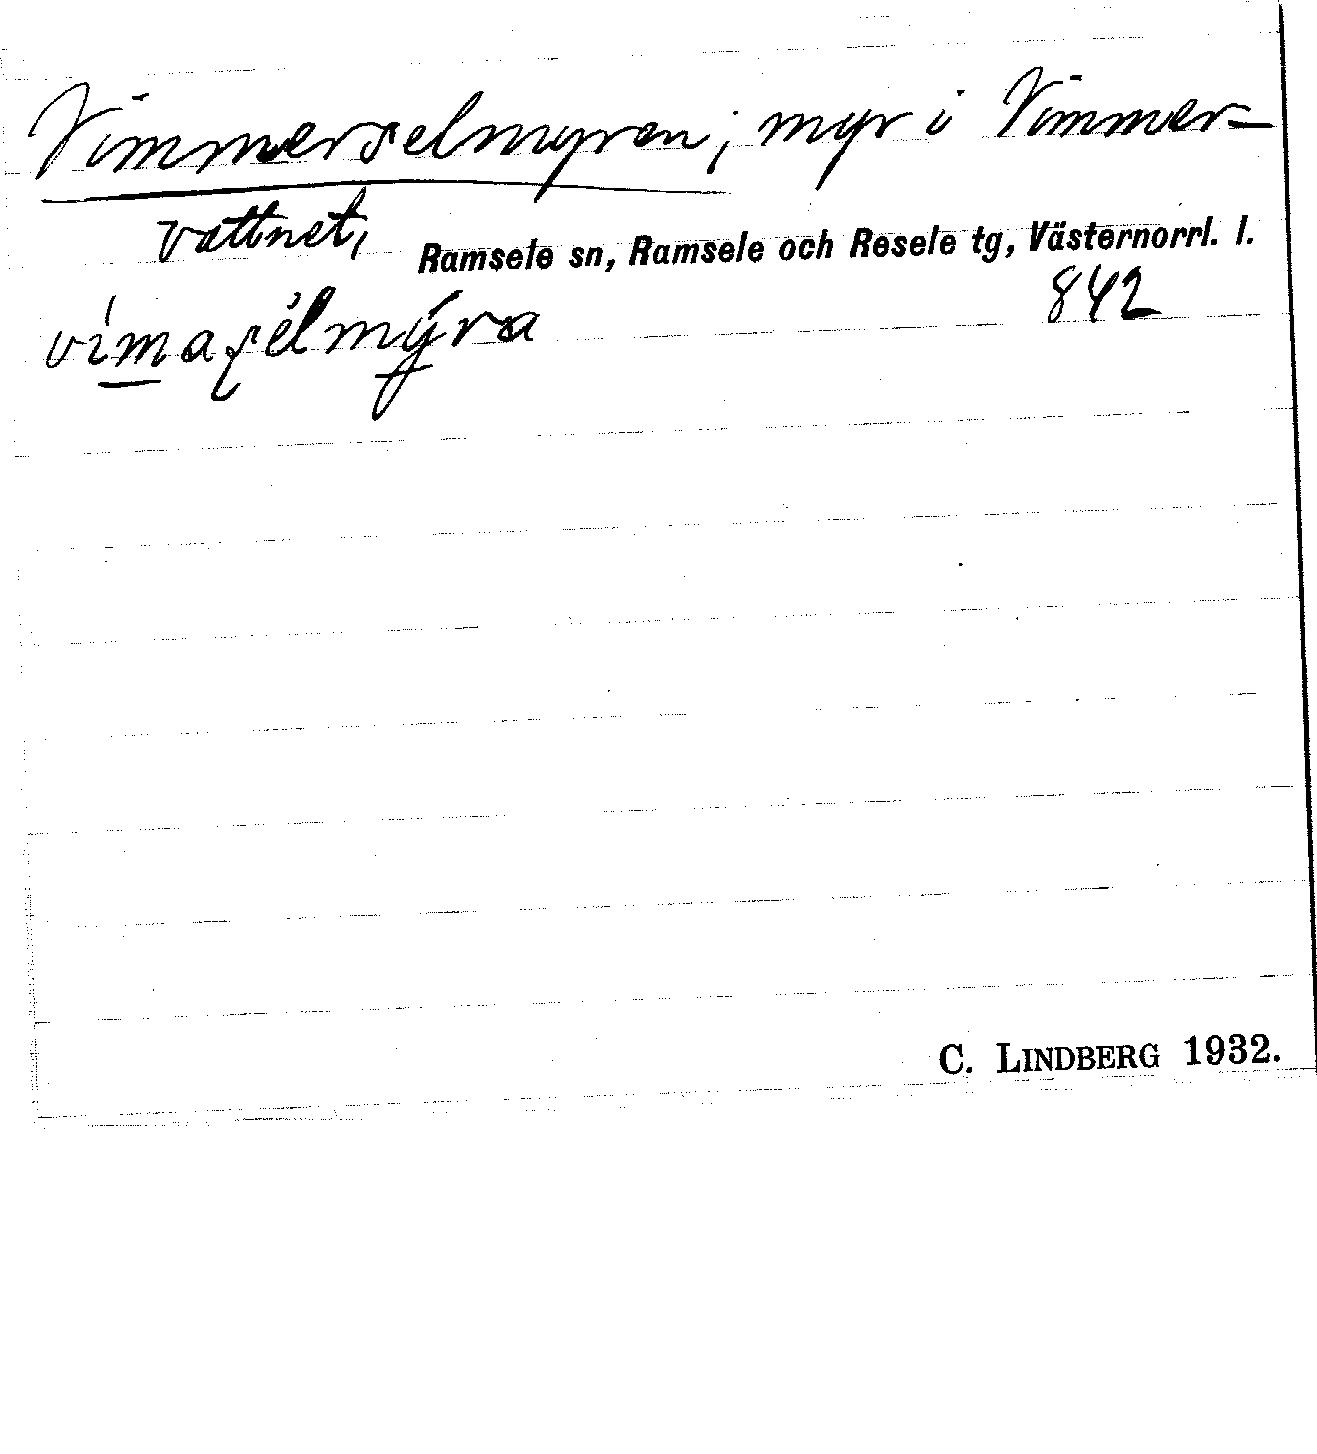 Vimmerselmyren; myr i Vimmer-
vattnet,
Ramsele sn, Ramsele och Resele tg, Västernorrl. l.
842
C. LINDBERG 1932.